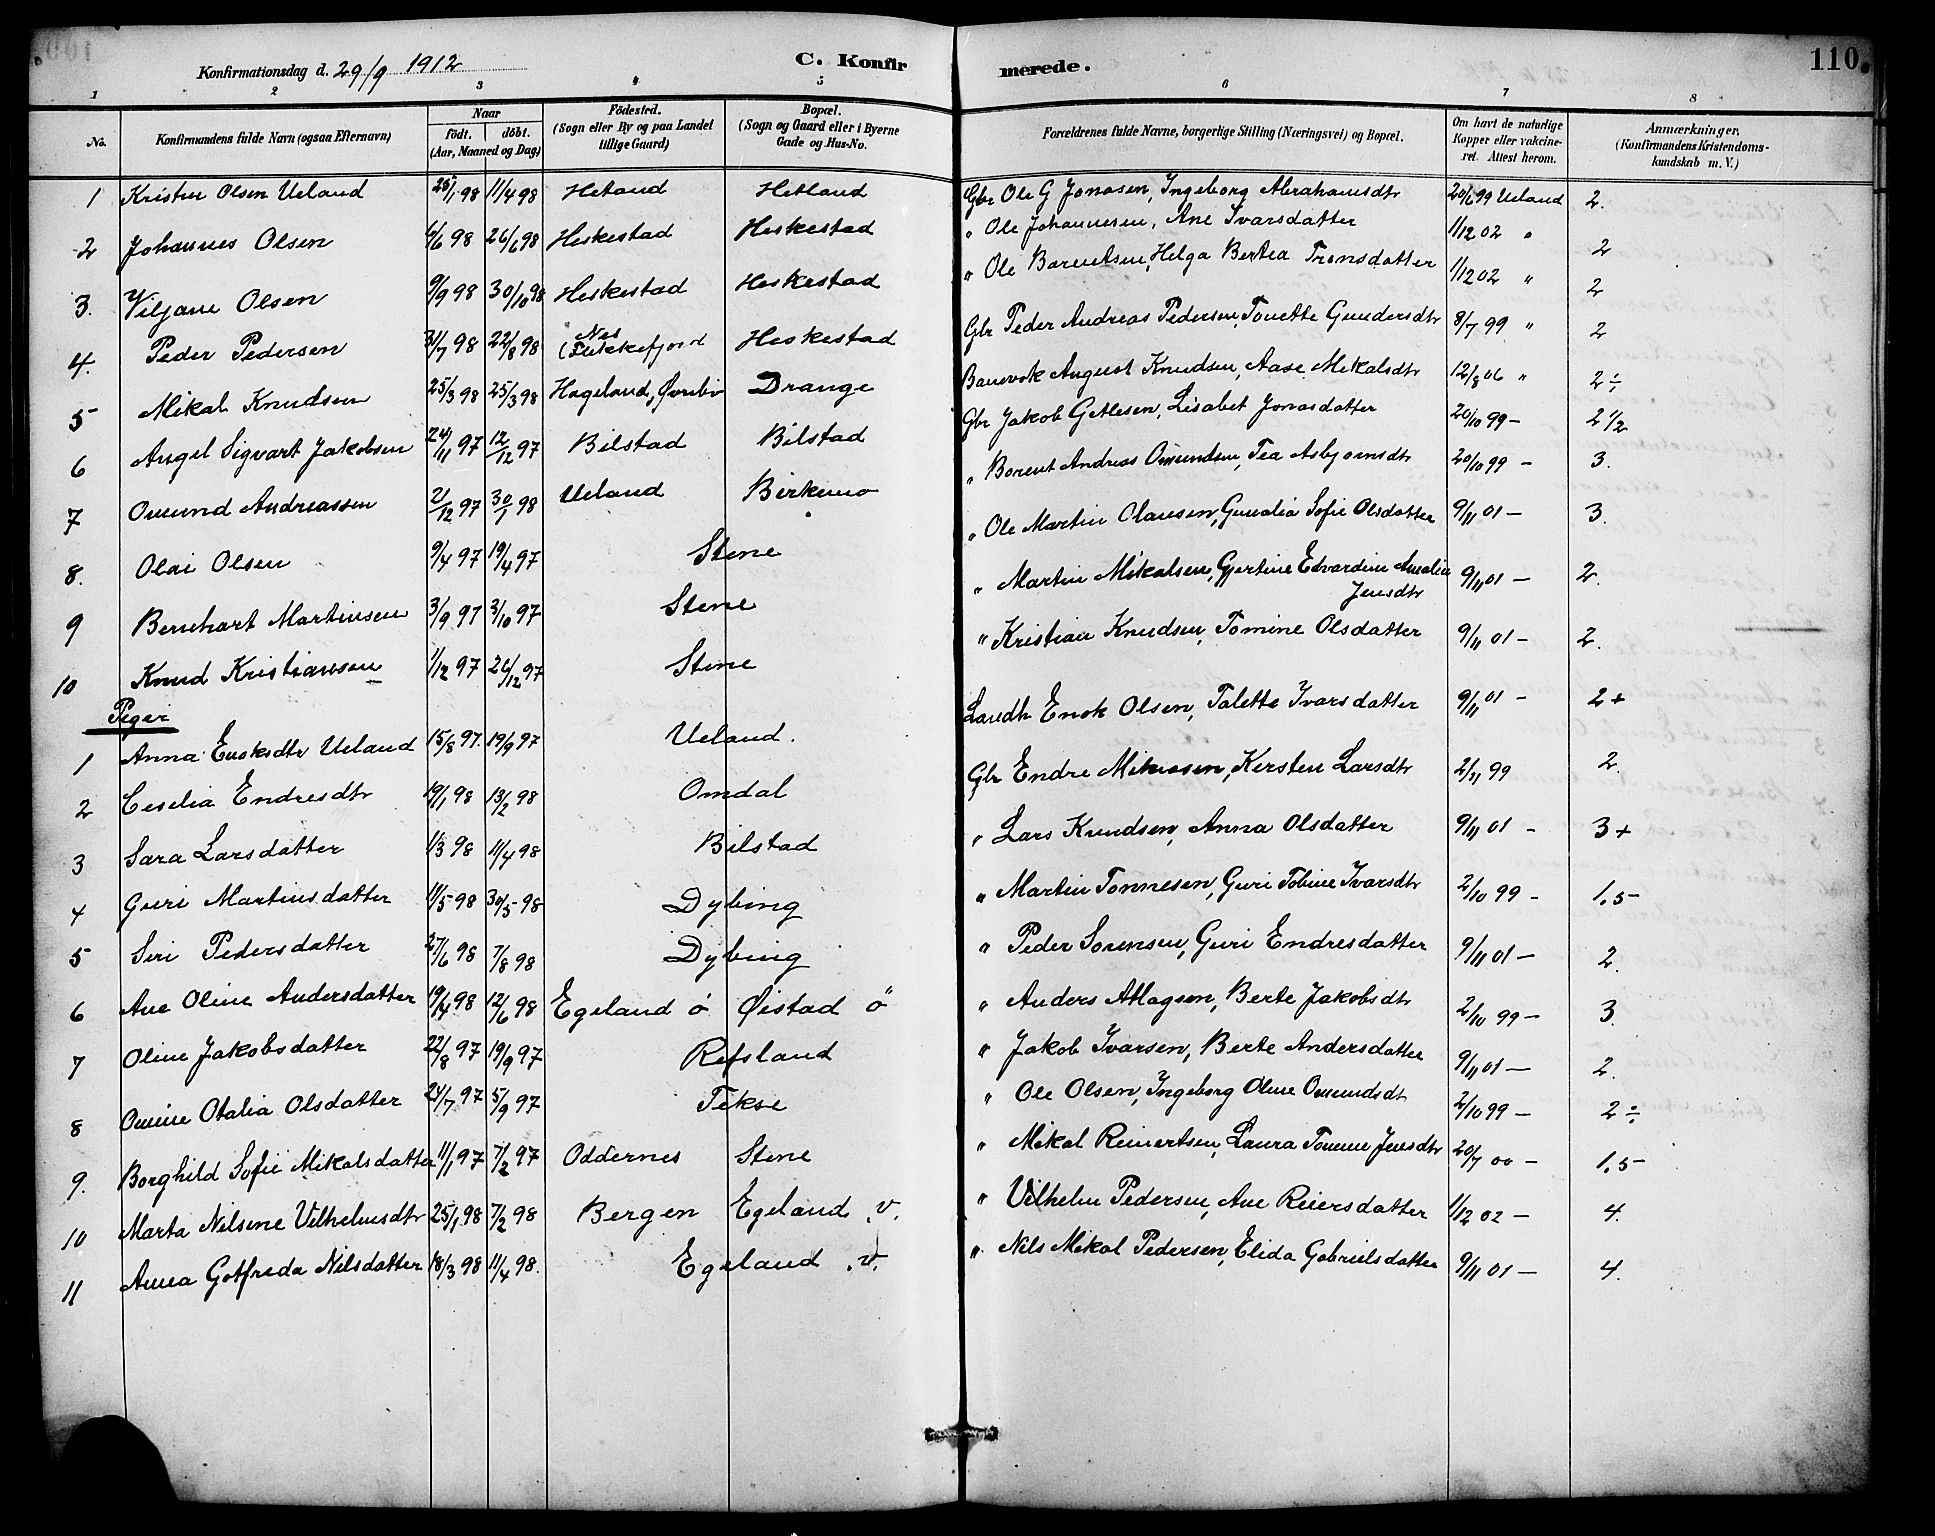 Konfirmationsdag d. 29/9 1912 C. Konfirmerede. 110.
1 2 3 4 5 6 7 8
No. Konfirmandens fulde Navn (ogsaa Efternavn) Naar födt. döbt. (Aar, Maaned og Dag) Födested. (Sogn eller By og paa Landet tillige Gaard) Bopæl. (Sogn og Gaard eller i Byerne Gade og Hus-No. Forældrenes fulde Navne, borgerlige Stilling (Næringsvei) og Bopæl. Om havt de naturlige Kopper eller vakcineret. Attest herom. Anmærkninger. (Konfirmandens Kristendomskundskab m. V.)
1 Kristen Olsen Ueland 25/1 98 11/4 98 Hetland Hetland Gbr Ole G Jonasen, Ingeborg Abrahamsdtr 20/6 99 Ueland 2.
2 Johannes Olsen 6/6 98 26/6 98 Heskestad Heskestad " Ole Johannesen, Ane Ivarsdatter 1/12 02 " 2
3. Viljane Olsen 9/9 98 30/10 98 Heskestad Heskestad " Ole Barentsen, Helga Bertea Tronsdatter 1/12 02 " 2
4. Peder Pedersen 31/7 98 22/8 98 Nes (Flekkefjord Heskestad Gbr Peder Andreas Pedersen, Tonette Gundersdtr 8/7 99 " 2
5 Mikal Knudsen 25/3 98 25/3 98 Hageland, Øvrebø Drange Banevok August Knudsen, Aase Mikalsdtr 12/8 06 " 2÷
6 Angel Sigvart Jakobsen 24/11 97 12/12 97 Bilstad Bilstad Gbr Jakob Getlesen, Lisabet Jonasdatter 20/10 99 - 2 1/2
7 Omund Andreassen 21/12 97 30/1 98 Ueland Birkemo " Borent Andreas Omundsen, Tea Asbjornsdtr 20/10 99 - 3.
8. Olai Olsen 9/4 97 19/4 97 Stene " Ole Martin Olausen, Gunalia Sofie Olsdatter 9/11 01 - 3.
9 Bernhart Martinsen 3/9 97 3/10 97 Stene " Martin Mikalsen, Gjertine Edvardine Amalie Jensdtr 9/11 01 - 2.
10 Knud Kristiansen 1/12 97 26/12 97 Stene " Kristian Knudsen, Tomine Olsdatter 9/11 01 - 2.
Piger
1 Anna Enoksdtr Ueland 15/8 97. 19/9 97 Ueland. Landh Enok Olsen, Talette Ivarsdatter 9/11 01 - 2+
2 Cecelia Endresdtr 19/1 98 13/2 98 Omdal Gbr Endre Mikkelsen, Kersten Larsdtr 2/11 99 2.
3 Sara Larsdatter 1/3 98 11/4 98 Bilstad " Lars Knudsen, Anna Olsdatter 9/11 01 - 3+
4 Guri Martinsdatter 11/5 98 30/5 98 Dybing " Martin Tonnesen, Guri Tobine Ivarsdtr 2/10 99 - 1.5-
5 Siri Pedersdatter 27/6 98 7/8 98 Dybing " Peder Sorensen, Guri Endresdatter 9/11 01 - 2.
6 Ane Oline Andersdatter 19/4 98 12/6 98 Egeland ö Øistad ö " Anders Atlagsen, Berte Jakobsdtr 2/10 99 - 3.
7 Oline Jakobsdatter 22/8 97 19/9 97 Refsland " Jakob Ivarsen, Berte Andersdatter 9/11 01 - 2.
8 Omine Otalia Olsdatter 24/7 97 5/9 97 Tekse " Ole Olsen, Ingeborg Oline Omundsdt 2/10 99 - 2÷
9. Borghild Sofie Mikalsdatter 11/1 97 7/2 97 Oddernes Stene " Mikal Reinertsen, Laura Tomine Jensdtr 20/7 00 - 1.5-
10 Marta Nilsine Vilhelmsdtr 25/1 98 7/2 98 Bergen Egeland v. " Vilhelm Pedersen, Ane Reiersdatter 1/12 02 - 4.
11 Anna Gotfreda Nilsdatter 18/3 98 11/4 98. Egeland v. " Nils Mikal Pedersen, Elida Gabrielsdatter 9/11 01 - 4.